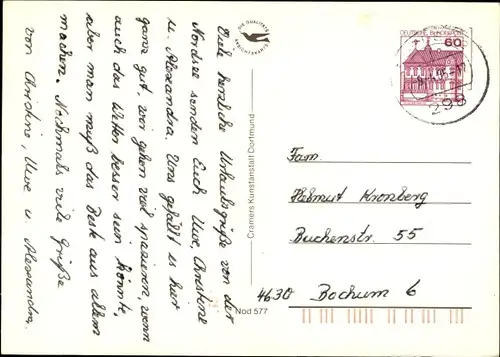 Viele herzliche Urlaubsgrüße von der
Nordsee senden Euch Uwe, Christine
u. Alexandra. Uns gefällt es hier
ganz gut, wir gehen viel spazieren, wenn
auch das Wetter besser sein könnte,
aber man muß das Beste aus allem
machen. Nochmals viele Grüße
von Christine, Uwe u. Alexandra.
Cramers Kunstanstalt Dortmund
Nod 577
DEUTSCHE BUNDESPOST
60
298
Fam.
Helmut Kronberg
Buchenstr. 55
4630 Bochum 6